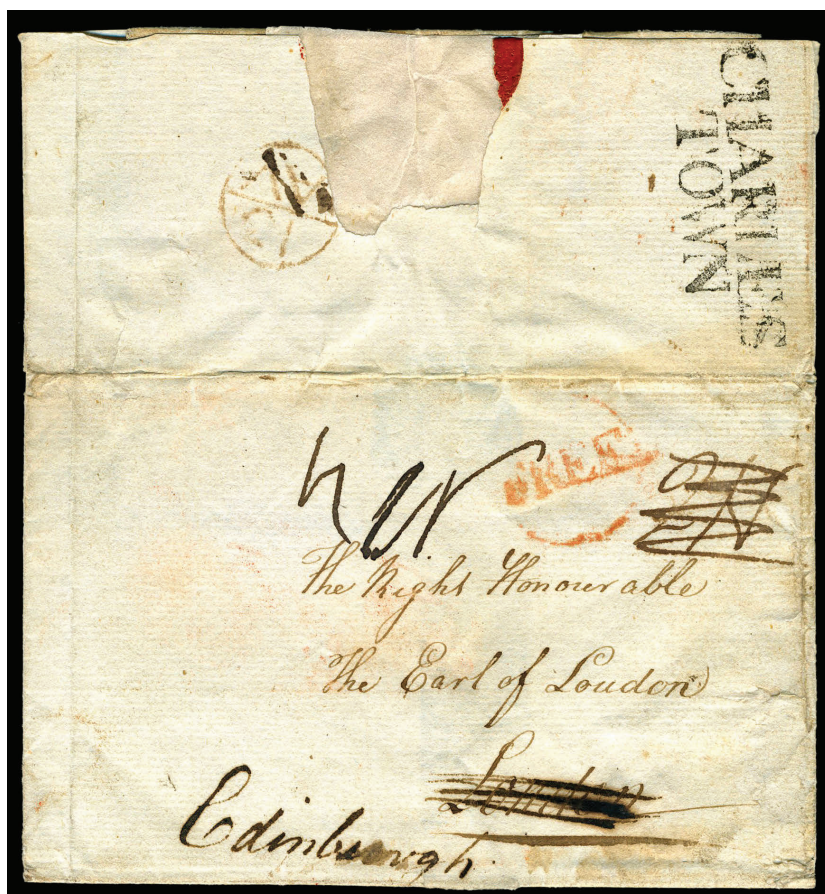 CHARLES
TOWN
FREE
The Right Honourable
The Earl of Loudon
London
Edinburgh.